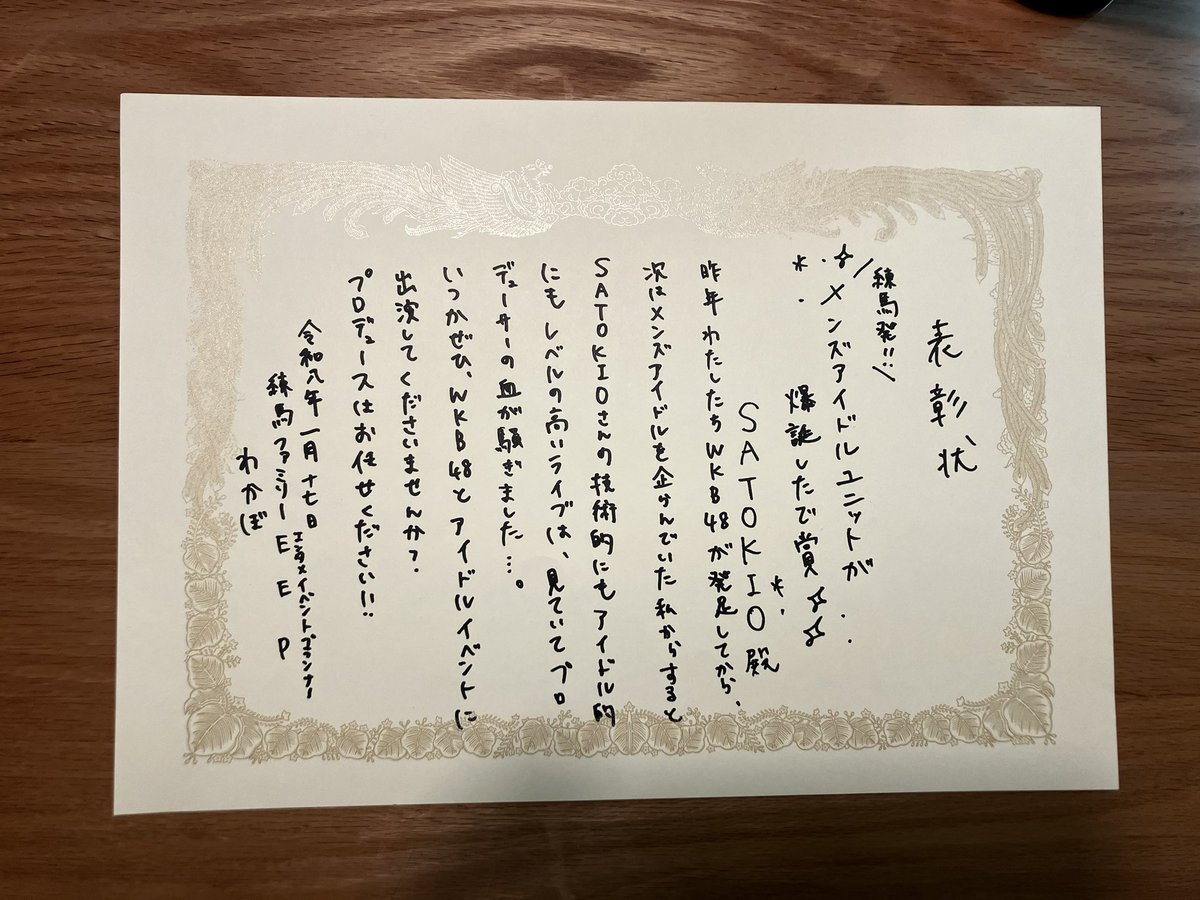 表彰状
＼練馬発!!／
☆メンズアイドルユニットが
爆誕したで賞☆☆
SATOKIO殿
昨年わたしたちWKB48が発足してから、
次はメンズアイドルを企んでいた私からすると
SATOKIOさんの技術的にもアイドル的
にもレベルの高いライブは、見ていてプロ
デューサーの血が騒ぎました…。
いつかぜひ、WKB48とアイドルイベントに
出演してくださいませんか？
プロデュースはお任せください!!
令和八年一月十七日
エンタメイベントプランナー
練馬ファミリーEEP
わかぼ